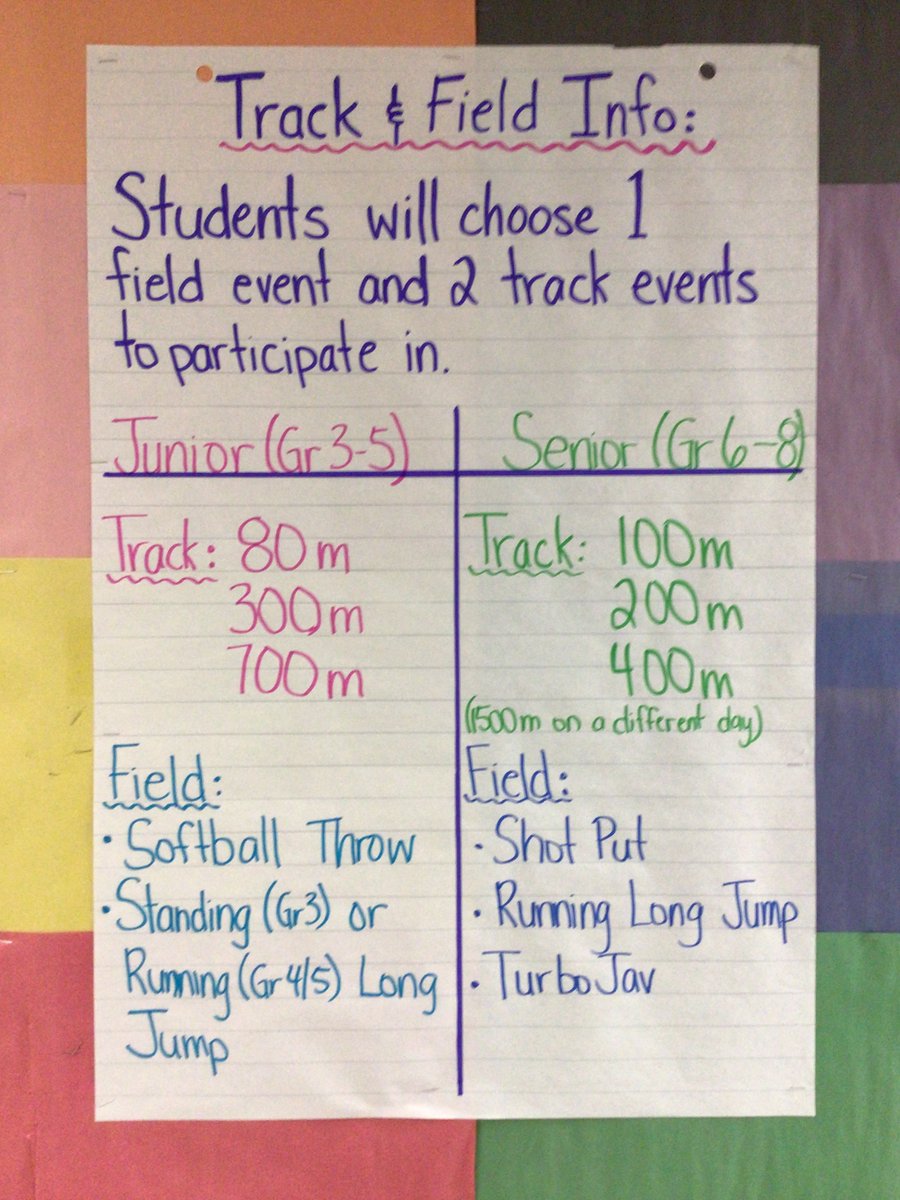 Track & Field Info:
Students will choose 1
field event and 2 track events
to participate in.
Junior (Gr 3-5)
Track: 80m
300m
700m
Field:
• Softball Throw
• Standing (Gr3) or
Running (Gr 4/5) Long
Jump
Senior (Gr 6-8)
Track: 100m
200m
400m
(1500m on a different day)
Field:
• Shot Put
• Running Long Jump
• Turbo Jav